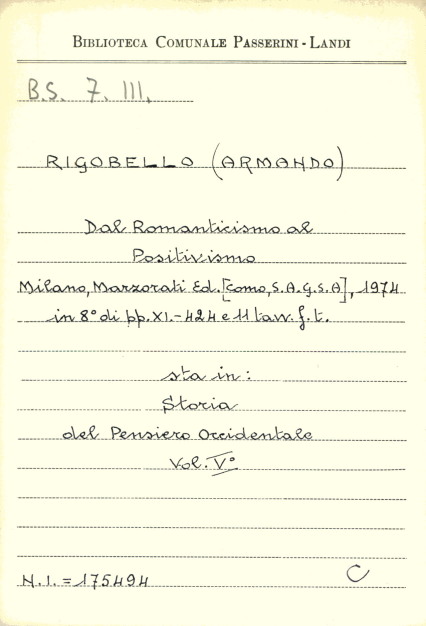 BIBLIOTECA COMUNALE PASSERINI - LANDI
B.S. 7. III.
RIGOBELLO (ARMANDO)
Dal Romanticismo al
Positivismo
Milano, Marzorati Ed. [Como, S.A.G.S.A], 1974
in 8° di pp. XI.-424 e 11 tavv. f. t.
sta in:
Storia
del Pensiero Occidentale
Vol. V°
N.I. = 175494
C